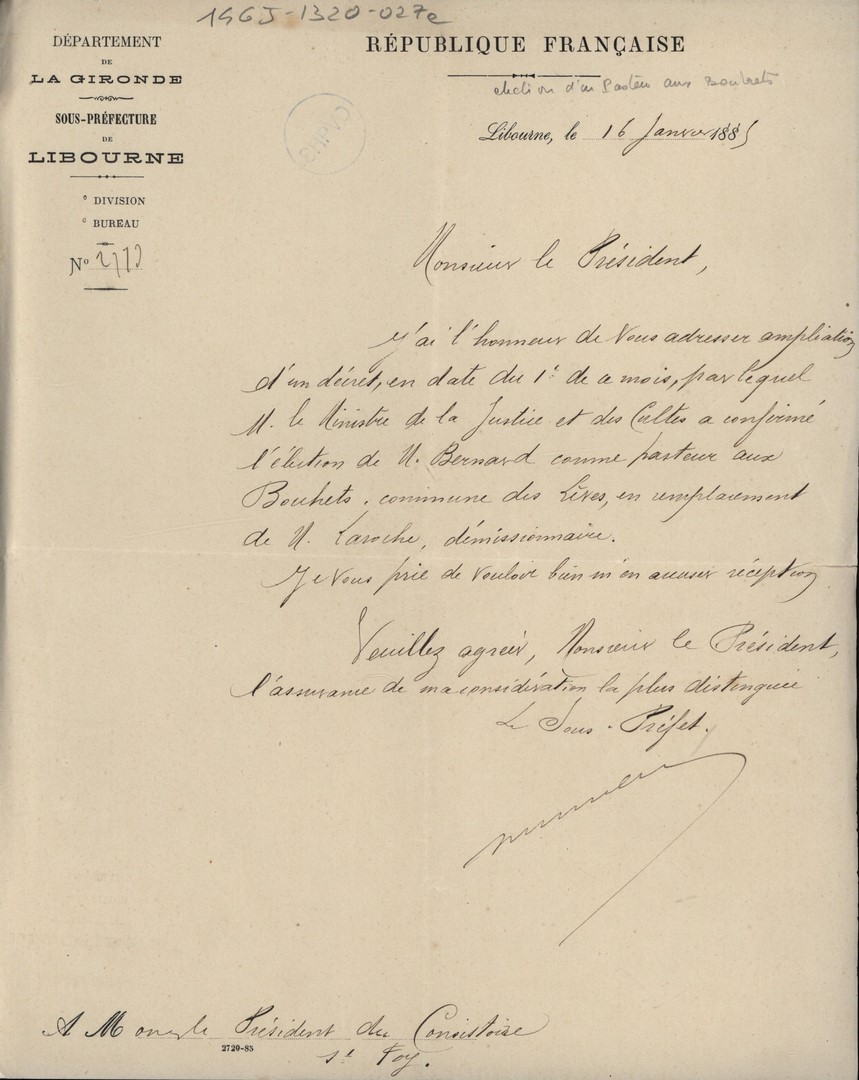 19GJ-1320-027e
DÉPARTEMENT
DE
LA GIRONDE
SOUS-PRÉFECTURE
DE
LIBOURNE
e DIVISION
e BUREAU
No
RÉPUBLIQUE FRANÇAISE
élection d'un Pasteur aux Bouhets
Libourne, le 16 Janvier 1885
Monsieur le Président,
J'ai l'honneur de vous adresser ampliation
d'un décret, en date du 1er de ce mois, par lequel
M. le Ministre de la Justice et des Cultes a confirmé
l'élection de M. Bernard comme pasteur aux
Bouhets, commune des Lèves, en remplacement
de M. Laroche, démissionnaire.
Je vous prie de vouloir bien m'en accuser réception
Veuillez agréer, Monsieur le Président,
l'assurance de ma considération la plus distinguée
Le Sous-Préfet.
A Mons le Président du Consistoire
2720-83
St Foy.